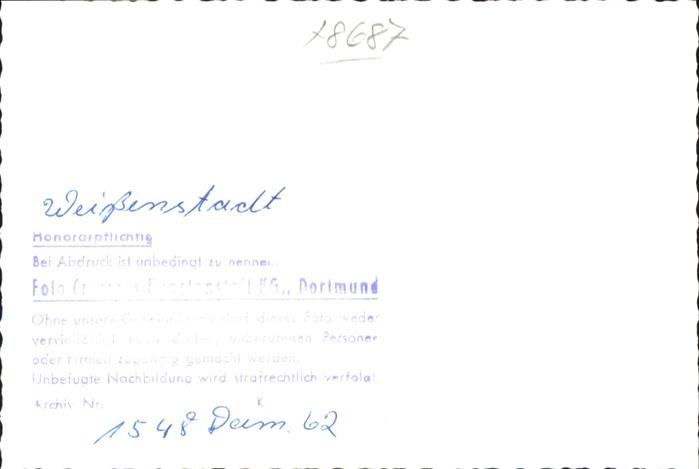 18687
Weißenstadt
Honorarpflichtig
Bei Abdruck ist unbedingt zu nennen:
Foto KG., Dortmund
Ohne unsere Genehmigung darf dieses Foto weder
vervielfältigt noch dritten, unberufenen Personen
oder Firmen zugängig gemacht werden.
Unbefugte Nachbildung wird strafrechtlich verfolgt.
Archiv Nr. K
1548 Dam. 62